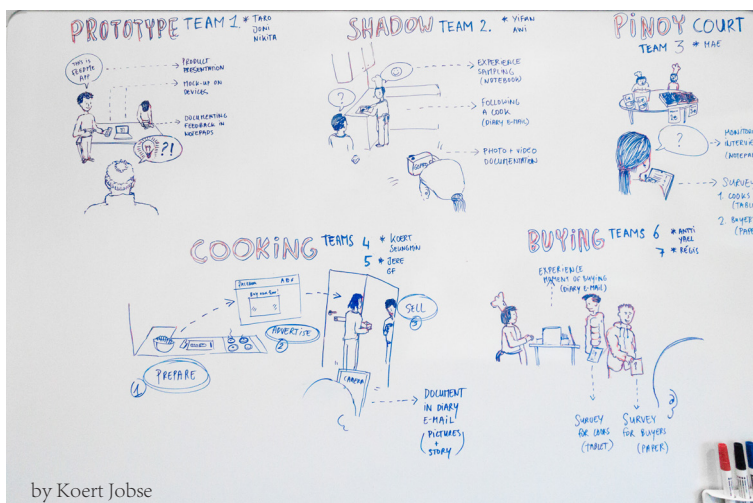 PROTOTYPE TEAM 1. * TARO
JONI
NIKITA
THIS IS
APP
PRODUCT
PRESENTATION
MOCK-UP ON
DEVICES
DOCUMENTING
FEEDBACK IN
NOTEPADS
?!
SHADOW TEAM 2. * YIFAN
AWI
?
EXPERIENCE
SAMPLING
(NOTEBOOK)
FOLLOWING
A COOK
(DIARY E-MAIL)
PHOTO + VIDEO
DOCUMENTATION
PINOY COURT
TEAM 3 * MAE
?
MONITO
INTERVI
(NOTEPA
SURVE
1. COOKS
(TABL
2. BUYER
(PAP
COOKING TEAMS 4 * KOERT
SEUNGMIN
5 * JERE
GF
BUY NOW
ADVERTISE
2
SELL
3
PREPARE
1
CAMERA
DOCUMENT
IN DIARY
E-MAIL
(PICTURES
+
STORY)
BUYING TEAMS 6 * ANTTI
YAEL
7 * RÉGIS
EXPERIENCE
MOMENT OF BUYING
(DIARY E-MAIL)
?
SURVEY
FOR COOKS
(TABLET)
SURVEY
FOR BUYERS
(PAPER)
by Koert Jobse